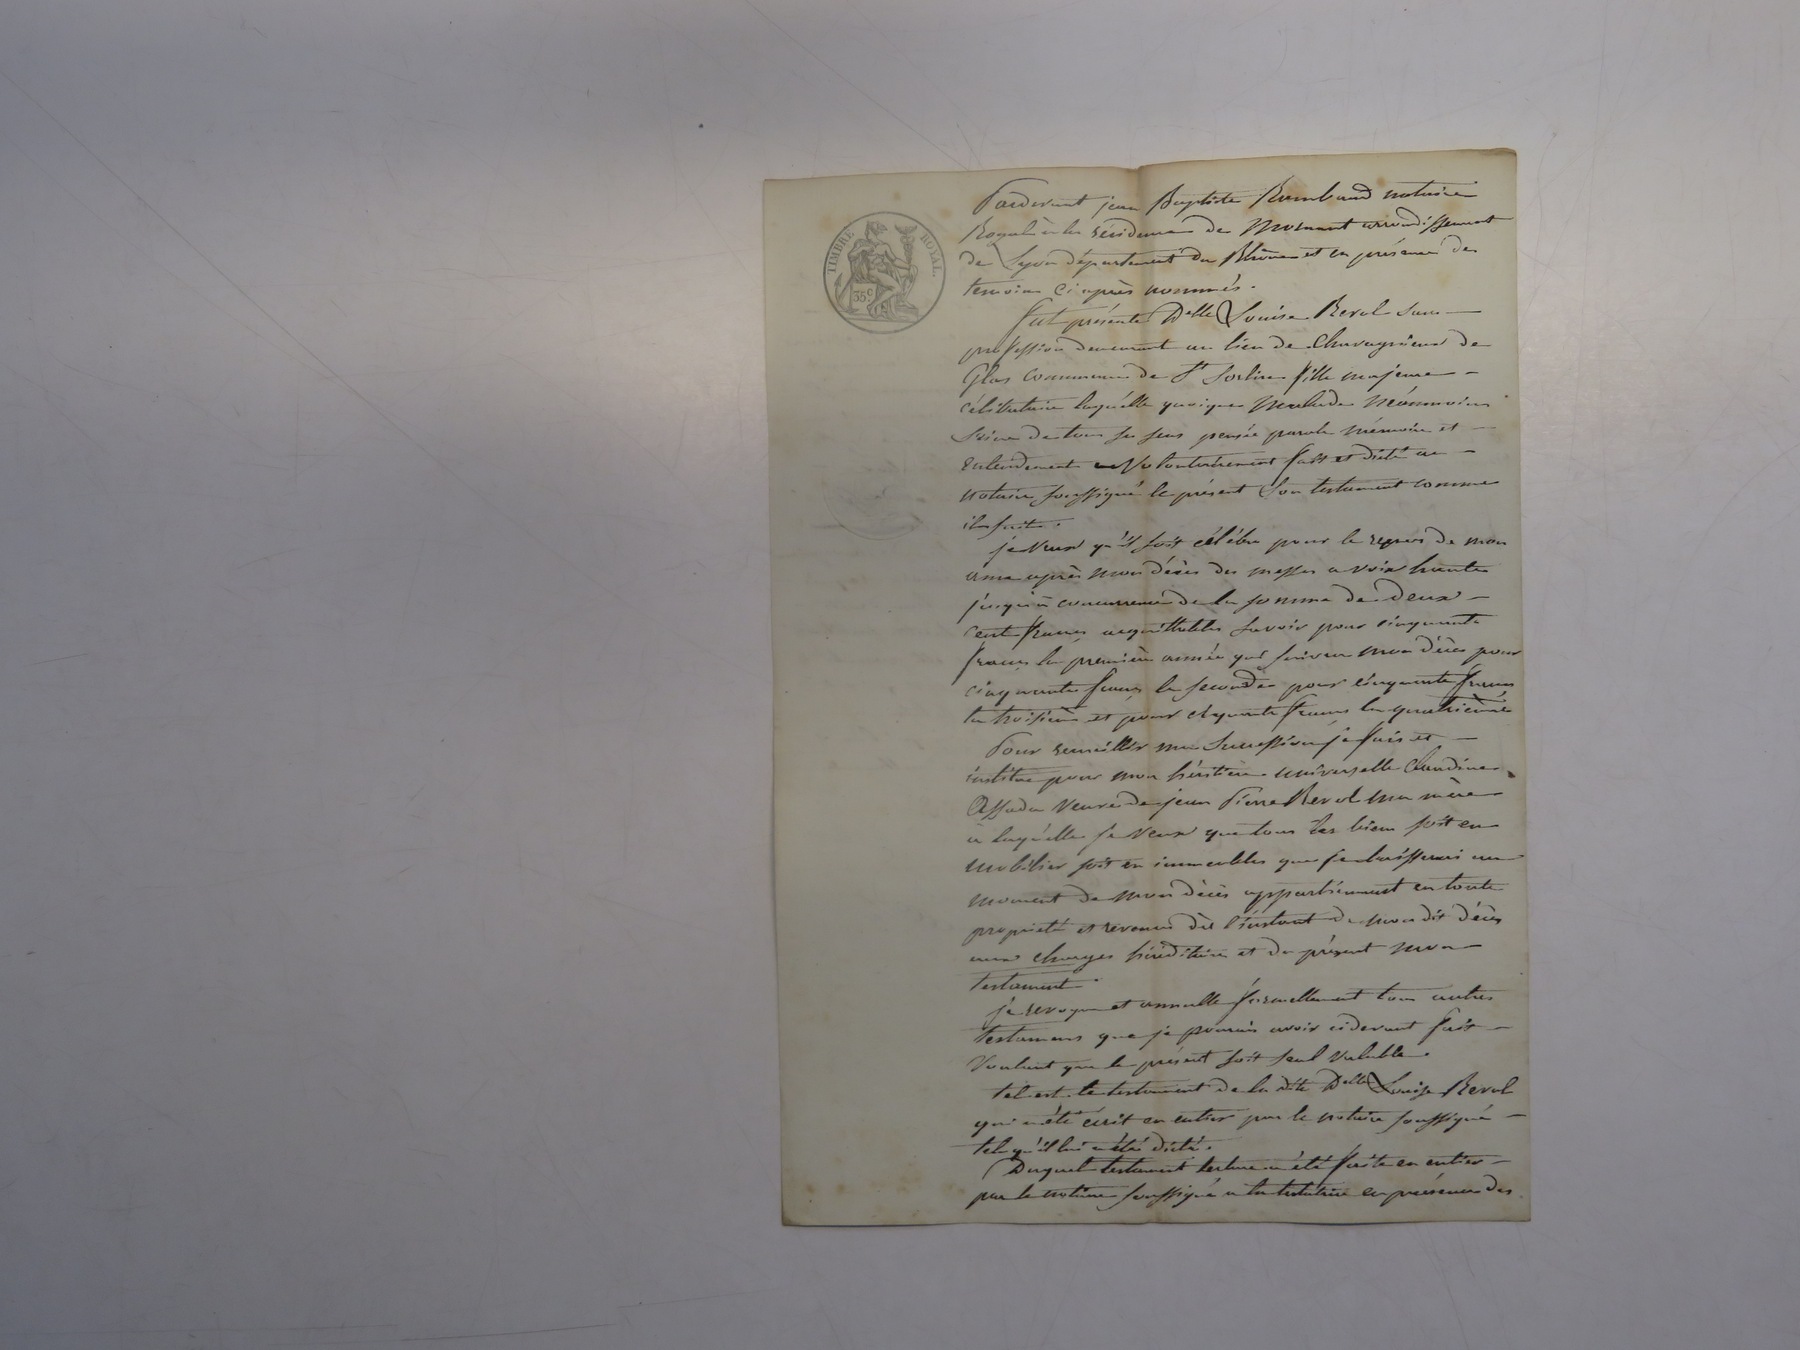 TIMBRE ROYAL.
35 c
Pardevant jean Baptiste Rambaud notaire
Royal à la résidence de Mornant arrondissement
de Lyon département du Rhône et en présence de
temoins ci après nommés.
fut présente Delle Louise Revol sans
profession demeurant au lieu de Chavagnieux de
Glas commune de St Sorlin fille majeure
célibataire laquélle quoique Malade Néonmoins
Saine de tous ses sens pensée parole memoire et
entendement a Volontairement fait et dicté au
notaire soussigné le présent Son testament comme
il suit.
je veux qu'il soit célébré pour le repos de mon
ame après mon décès des messes a voix haute
jusqu'à concurrence de la somme de deux
cent francs acquittables Savoir pour cinquante
francs la première année qui suivra mon décès pour
cinquante francs la seconde pour cinquante francs
la troisième et pour cinquante francs la quatrième
Pour recueillir ma Succession je fais et
institue pour mon héritière universelle Claudine
Assada Veuve de jean Pierre Revol ma mère
a laquélle je Veux que tous les biens soit en
mobilier soit en immeubles que je laisserai au
moment de mon décès appartiennent en toute
propriété et revenu dès l'instant de mon dit décès
aux charges héréditaire et du présent mon
testament.
je revoque et annulle formellement tous autres
testamens que je pourais avoir cidevant fait
Voulant que le présent soit seul valable.
tel est le testament de la dite Delle Louise Revol
qui a été écrit en entier par le notaire soussigné
tel qu'il lui a été dicté.
Duquel testament lecture a été faite en entier
par le notaire soussigné a la testatrice en présence des